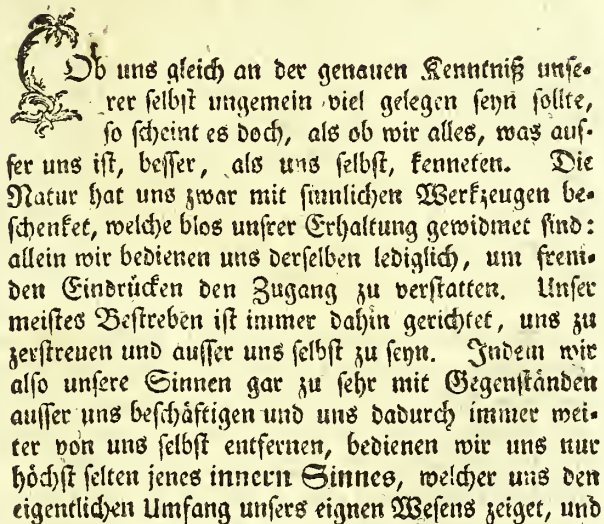 Ob uns gleich an der genauen Kenntniß unse-
rer selbst ungemein viel gelegen seyn sollte,
so scheint es doch, als ob wir alles, was aus-
ser uns ist, besser, als uns selbst, kenneten. Die
Natur hat uns zwar mit sinnlichen Werkzeugen be-
schenket, welche blos unsrer Erhaltung gewidmet sind:
allein wir bedienen uns derselben lediglich, um frem-
den Eindrücken den Zugang zu verstatten. Unser
meistes Bestreben ist immer dahin gerichtet, uns zu
zerstreuen und ausser uns selbst zu seyn. Indem wir
also unsere Sinnen gar zu sehr mit Gegenständen
ausser uns beschäftigen und uns dadurch immer wei-
ter von uns selbst entfernen, bedienen wir uns nur
höchst selten jenes innern Sinnes, welcher uns den
eigentlichen Umfang unsers eignen Wesens zeiget, und